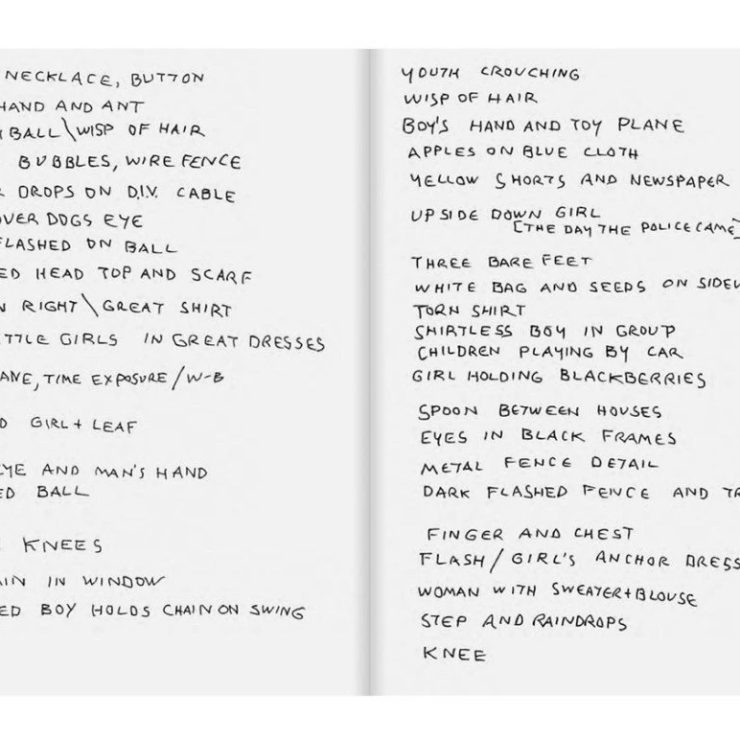 NECKLACE, BUTTON
HAND AND ANT
BALL\WISP OF HAIR
BUBBLES, WIRE FENCE
DROPS ON D.I.V. CABLE
OVER DOGS EYE
FLASHED ON BALL
HEAD TOP AND SCARF
RIGHT\GREAT SHIRT
GIRLS IN GREAT DRESSES
TIME EXPOSURE/W-B
GIRL + LEAF
AND MAN'S HAND
BALL
KNEES
IN WINDOW
BOY HOLDS CHAIN ON SWING
YOUTH CROUCHING
WISP OF HAIR
BOY'S HAND AND TOY PLANE
APPLES ON BLUE CLOTH
YELLOW SHORTS AND NEWSPAPER
UPSIDE DOWN GIRL
[THE DAY THE POLICE CAME]
THREE BARE FEET
WHITE BAG AND SEEDS ON
TORN SHIRT
SHIRTLESS BOY IN GROUP
CHILDREN PLAYING BY CAR
GIRL HOLDING BLACKBERRIES
SPOON BETWEEN HOUSES
EYES IN BLACK FRAMES
METAL FENCE DETAIL
DARK FLASHED FENCE AND
FINGER AND CHEST
FLASH/GIRL'S ANCHOR DRESS
WOMAN WITH SWEATER+BLOUSE
STEP AND RAINDROPS
KNEE